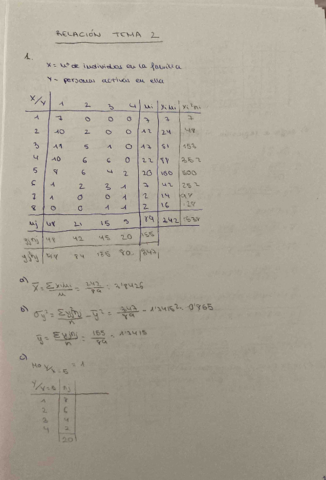 RELACIÓN TEMA 2
1.
X = nº de individuos en la familia
Y = personas activas en ella
X/Y 1 2 3 4 ni xini xi²ni
1 7 0 0 0 7 7 7
2 10 2 0 0 12 24 48
3 11 5 1 0 17 51 153
4 10 6 6 0 22 88 352
5 8 6 4 2 20 100 500
6 1 2 3 1 7 42 252
7 1 0 0 1 2 14
8 0 0 1 1 2 16
nj 48 21 15 5 89 342
yjnj 48 42 45 20 155
yj²nj 48 84 135 80 347
a)
x̄ = Σxini/n = 342/89 = 3'8426
b) σy² = Σyj²nj/n - ȳ² = 347/89 - 1'7415² = 0'865
ȳ = Σyjnj/n = 155/89 = 1'7415
c)
= 1
Y/X=5 nj
1 8
2 6
3 4
4 2
20